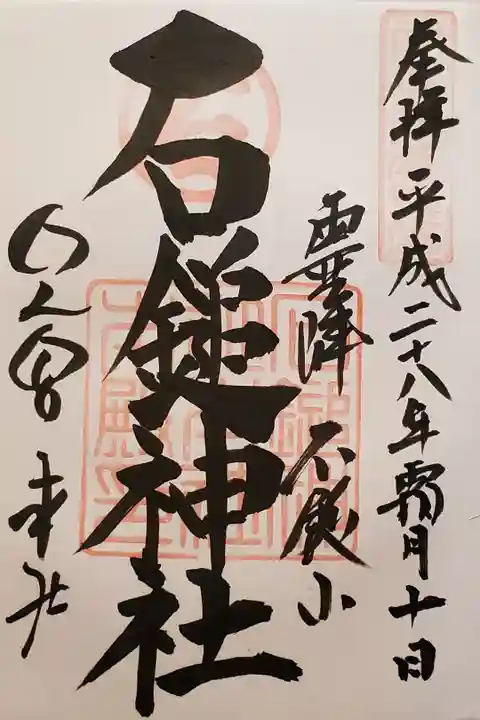 奉拝 平成二十八年霜月十日
靈峰 石鎚山
石鎚神社
口之宮 本社